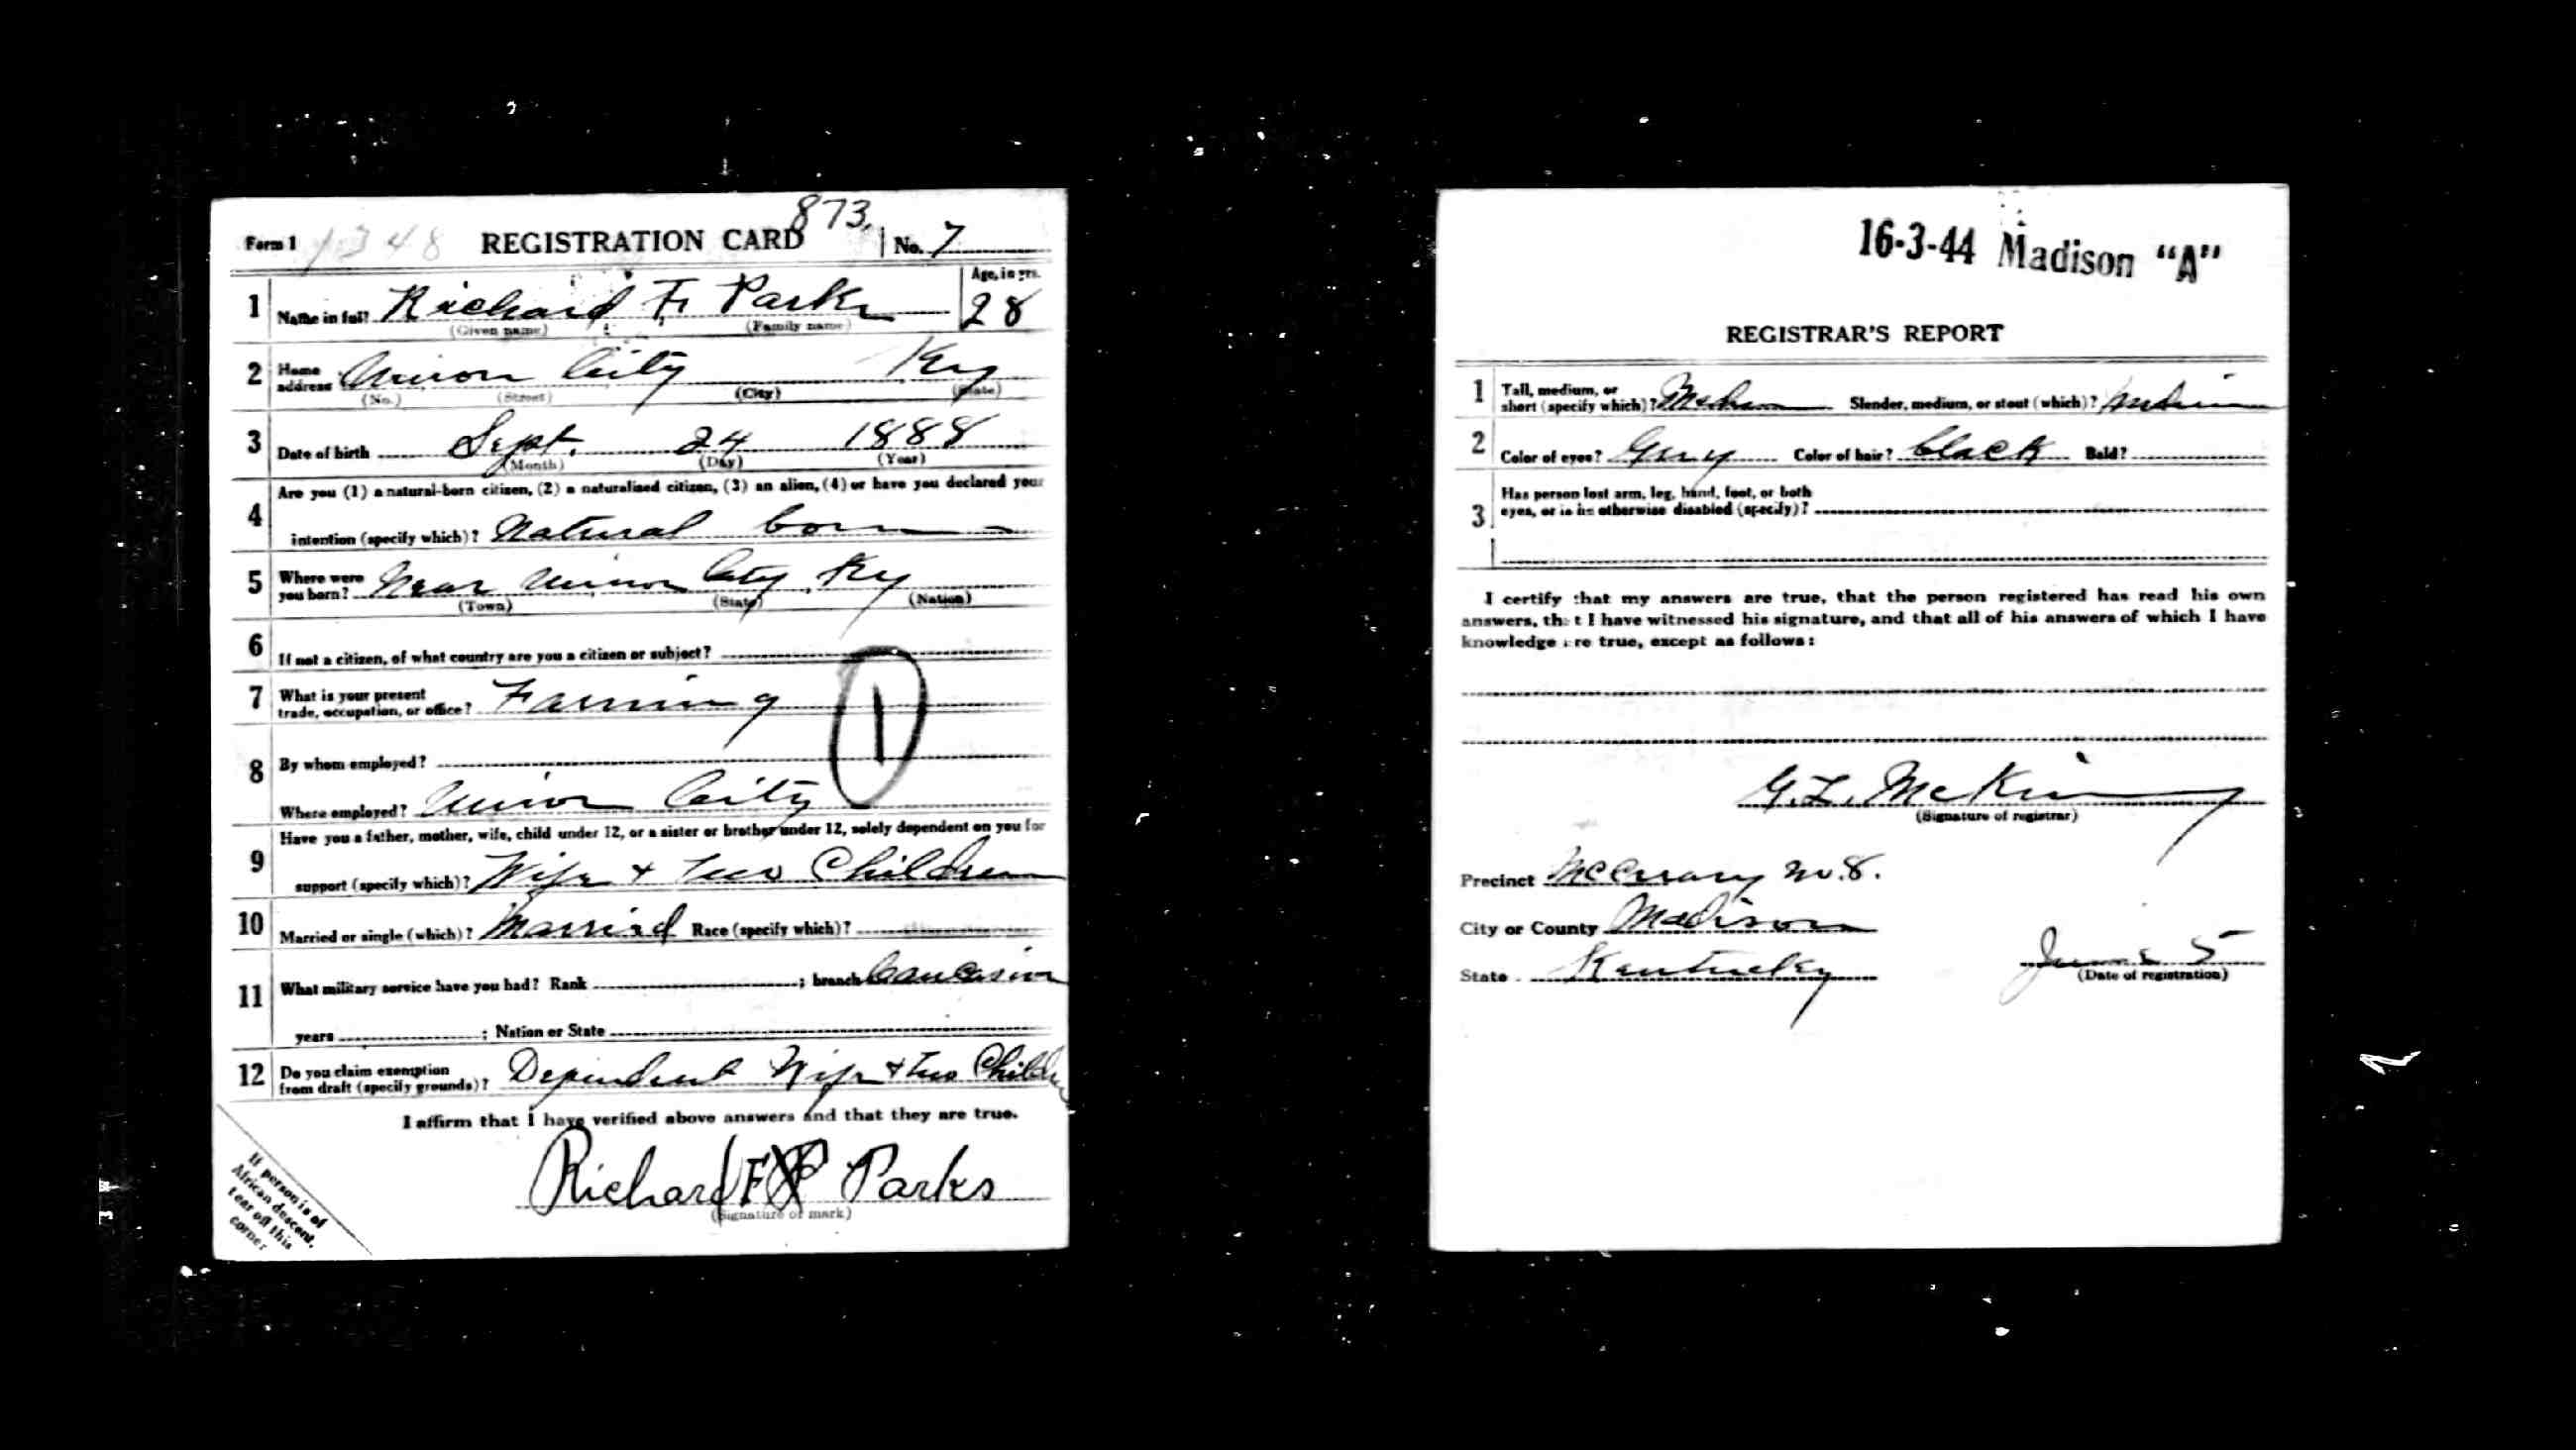 873.
Form 1 1348 REGISTRATION CARD No. 7
1 Name in full? Richard F. Parks Age, in yrs. 28
(Given name) (Family name)
2 Home address Union City Ky
(No.) (Street) (City) (State)
3 Date of birth Sept. 24 1888
(Month) (Day) (Year)
4 Are you (1) a natural-born citizen, (2) a naturalized citizen, (3) an alien, (4) or have you declared your
intention (specify which)? Natural born
5 Where were you born? Near Union City Ky
(Town) (State) (Nation)
6 If not a citizen, of what country are you a citizen or subject?
7 What is your present
trade, occupation, or office? Farming
1
8 By whom employed?
Where employed? Union City
9 Have you a father, mother, wife, child under 12, or a sister or brother under 12, solely dependent on you for
support (specify which)? Wife + two Children
10 Married or single (which)? Married Race (specify which)?
11 What military service have you had? Rank ; branch Caucasion
years ; Nation or State
12 Do you claim exemption
from draft (specify grounds)? Dependent Wife + two Children
I affirm that I have verified above answers and that they are true.
Richard F Parks
(Signature or mark)
If person is of
African descent,
tear off this
corner
16-3-44 Madison "A"
REGISTRAR'S REPORT
1 Tall, medium, or
short (specify which)? Medium Slender, medium, or stout (which)? Medium
2 Color of eyes? Grey Color of hair? black Bald?
3 Has person lost arm, leg, hand, foot, or both
eyes, or is he otherwise disabled (specify)?
I certify that my answers are true, that the person registered has read his own
answers, that I have witnessed his signature, and that all of his answers of which I have
knowledge are true, except as follows:
G. L. McKinney
(Signature of registrar)
Precinct McCreary No. 8.
City or County Madison
State Kentucky June 5
(Date of registration)